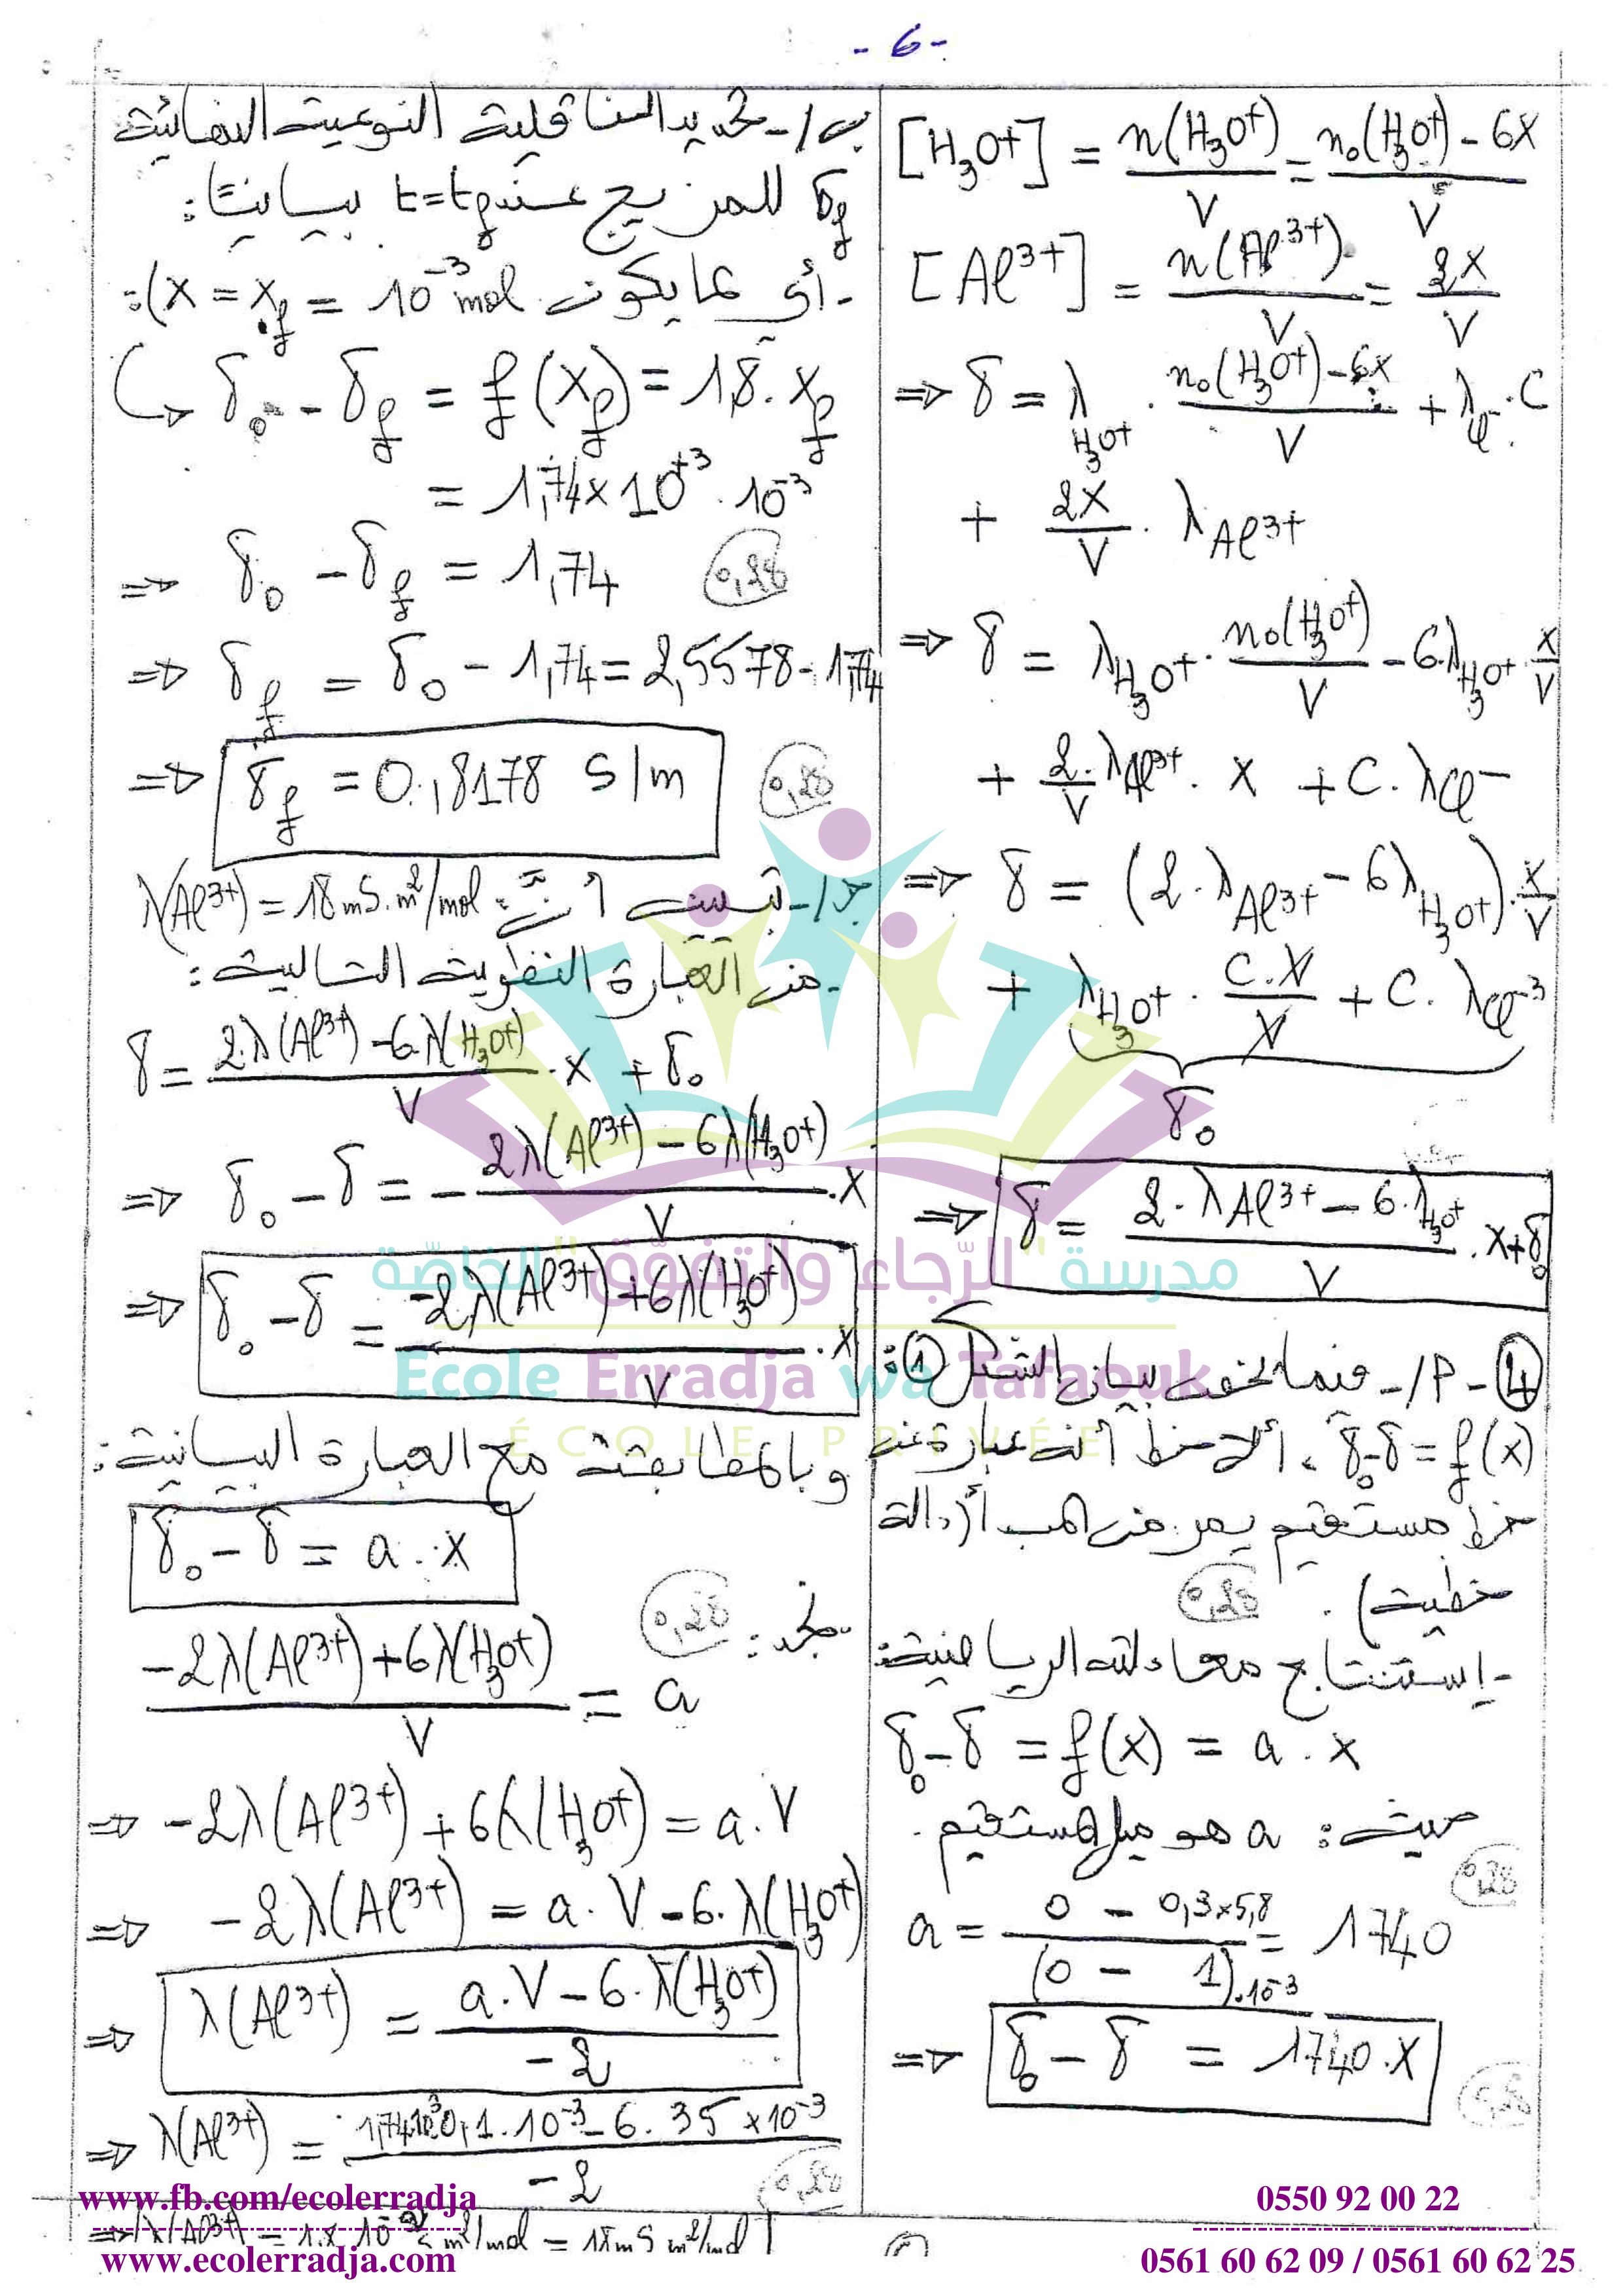 - 6 -
[H₃O⁺] = n(H₃O⁺)/V = n₀(H₃O⁺) - 6x / V
[Al³⁺] = n(Al³⁺)/V = 2x/V
⇒ δ = λ_H₃O⁺ . n₀(H₃O⁺) - 6x / V + λ_Cl⁻ . C
+ 2x/V . λ_Al³⁺
⇒ δ = λ_H₃O⁺ . n₀(H₃O⁺)/V - 6.λ_H₃O⁺ . x/V
+ 2.λ_Al³⁺/V . x + C.λ_Cl⁻
⇒ δ = (2.λ_Al³⁺ - 6λ_H₃O⁺).x/V
+ λ_H₃O⁺ . C.V/V + C. λ_Cl⁻
δ₀
⇒ δ = 2.λ_Al³⁺ - 6.λ_H₃O⁺ / V . x + δ₀
④ - أ/ - فيما يخص بيان الشكل ①:
δ₀-δ = f(x) ، ألاحظ أنه عبارة عن
خط مستقيم يمر من المبدأ (دالة
خطية) .
0,25
- إستنتاج معادلته الرياضية:
δ₀-δ = f(x) = a . x
حيث: a هو ميل المستقيم .
0,25
a = 0 - 0,3×5,8 / (0 - 1).10⁻³ = 1740
⇒ δ₀ - δ = 1740.x
0,25
ب/- تحديد الناقلية النوعية النهائية
δf للمزيج عند t=tf بيانيًا:
- أي لما يكون (x = xf = 10⁻³ mol):
↪ δ₀ - δf = f(xf) = 1,8. xf
= 1,74×10⁺³ . 10⁻³
⇒ δ₀ - δf = 1,74
0,25
⇒ δf = δ₀ - 1,74 = 2,5578 - 1,74
⇒ δf = 0,8178 S/m
0,25
ج/- تبيين أنّ: λ(Al³⁺) = 18 mS.m²/mol
- من العبارة النظرية التالية:
δ = 2.λ(Al³⁺) - 6.λ(H₃O⁺) / V . x + δ₀
⇒ δ₀ - δ = - 2λ(Al³⁺) - 6λ(H₃O⁺) / V . x
⇒ δ₀ - δ = -2λ(Al³⁺) + 6λ(H₃O⁺) / V . x
وبالمطابقة مع العبارة البيانية:
δ₀ - δ = a . x
نجد:
0,25
-2λ(Al³⁺) + 6λ(H₃O⁺) / V = a
⇒ -2λ(Al³⁺) + 6λ(H₃O⁺) = a.V
⇒ -2λ(Al³⁺) = a. V - 6. λ(H₃O⁺)
⇒ λ(Al³⁺) = a.V - 6.λ(H₃O⁺) / -2
⇒ λ(Al³⁺) = 1,74.10³.0,1.10⁻³ - 6 . 35 ×10⁻³ / -2
0,25
m²/mol = 18 mS m²/mol
مدرسة "الرّجاء والتفوّق" الخاصّة
Ecole Erradja wa Tafaouk
ÉCOLE PRIVÉE
www.fb.com/ecolerradja
www.ecolerradja.com
0550 92 00 22
0561 60 62 09 / 0561 60 62 25